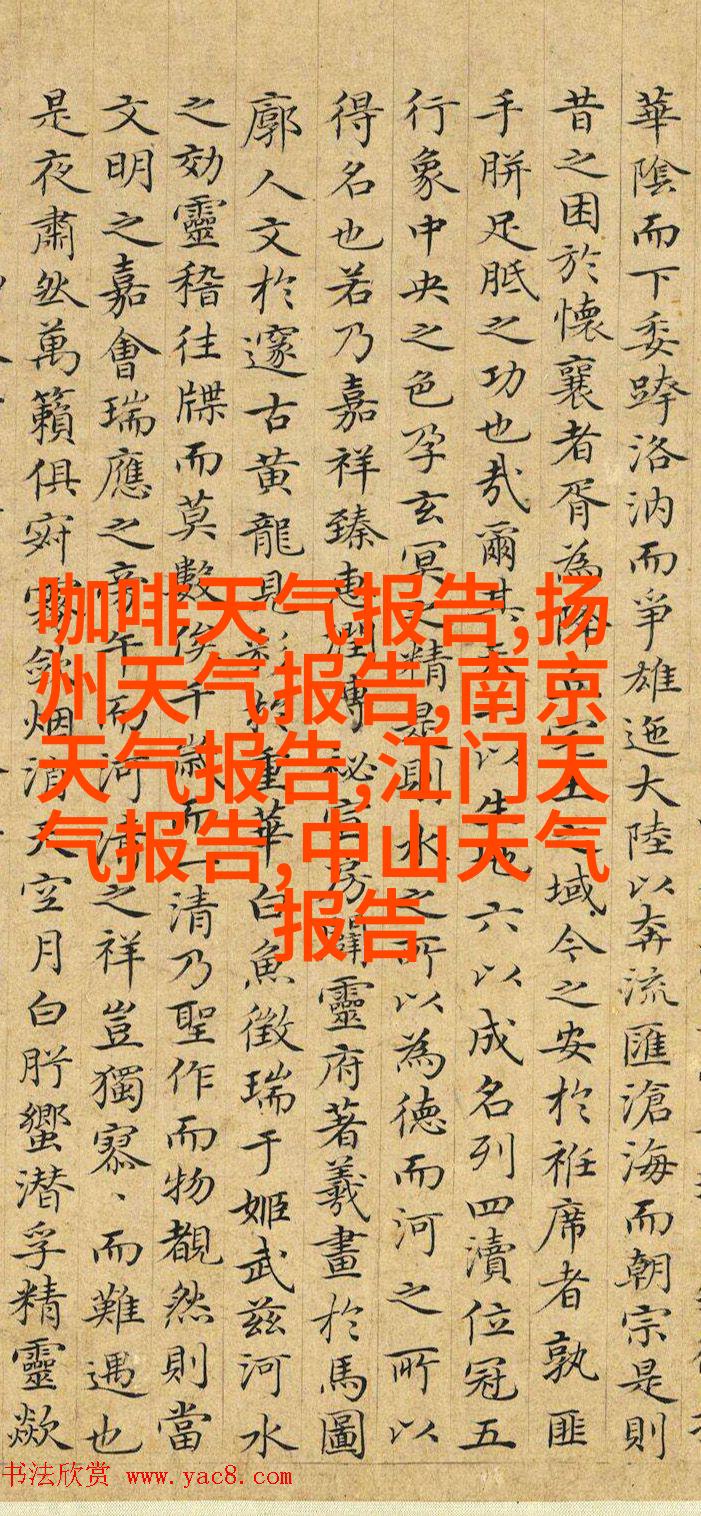 華陰而下委跨洛汭而爭雄迤大陸以奔流匯滄海而朝宗是則
昔之困於懷襄者胥為降之域今之安於袵席者孰匪
手胼足胝之功也哉爾其天一以生地六以成名列四瀆位冠五
行象中央之色孕玄冥之精是則水之所以為德而河之所以
得名也若乃嘉祥臻恵潤博秘闢靈府著羲畫於馬圖
廓人文於邃古黃龍見彩於重華白魚徵瑞于姬武茲河水
之効靈稽往牒而莫數俟千嵗而一清乃聖作而物覩然則當
文明之嘉會瑞應之旁午而河清之祥豈獨寡、而難遇也
是夜肅然萬籟俱寂霧斂烟消天空月白肸蠁潛孚精靈歘
咖啡天气报告,扬
州天气报告,南京
天气报告,江门天
气报告,中山天气
报告
书法欣赏 www.yac8.com